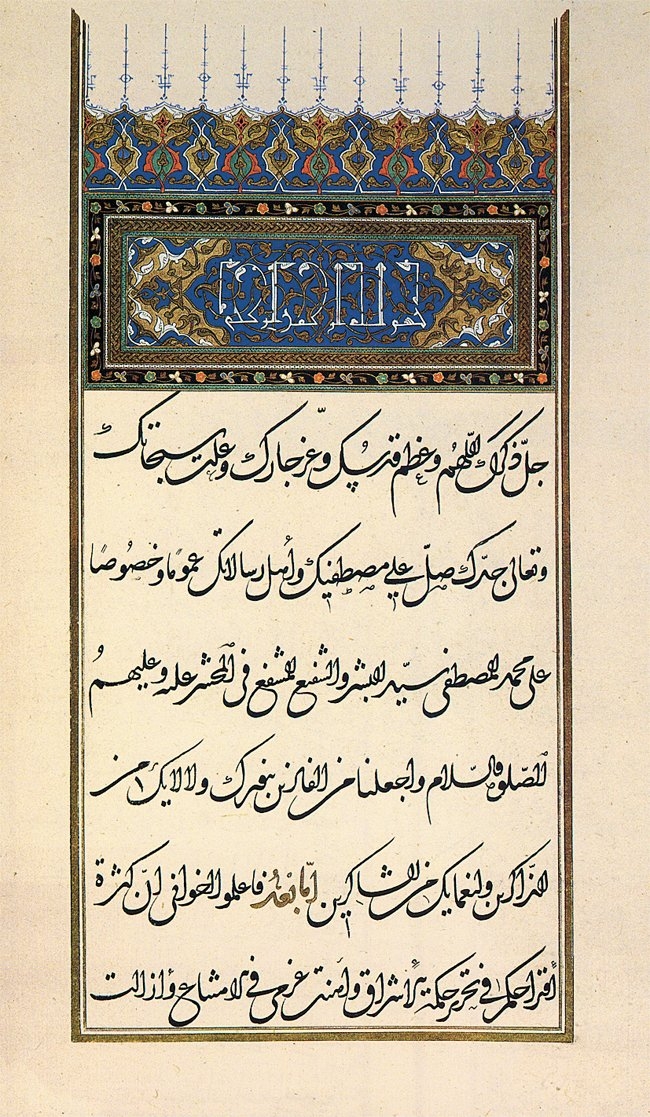 جلّ ذكرك اللّهم وعظم قدسك وعزّ جارك وعلت سبحاتك
وتعالى جدّك صلّ على مصطفيك وأهل رسالاتك عمومًا وخصوصًا
على محمد المصطفى سيّد البشر والشفيع المشفع في المحشر عليه وعليهمُ
الصلوة والسّلام واجعلنا من الفائزين بنورك ولالايك من
الذاكرين ولنعمايك من الشاكرين أمّا بعدُ فاعلموا اخواني انّ كثرة
أقتراحكم في تحرير حكمة الاشراق وأوهنت عزمي في الامتناع وأزالت